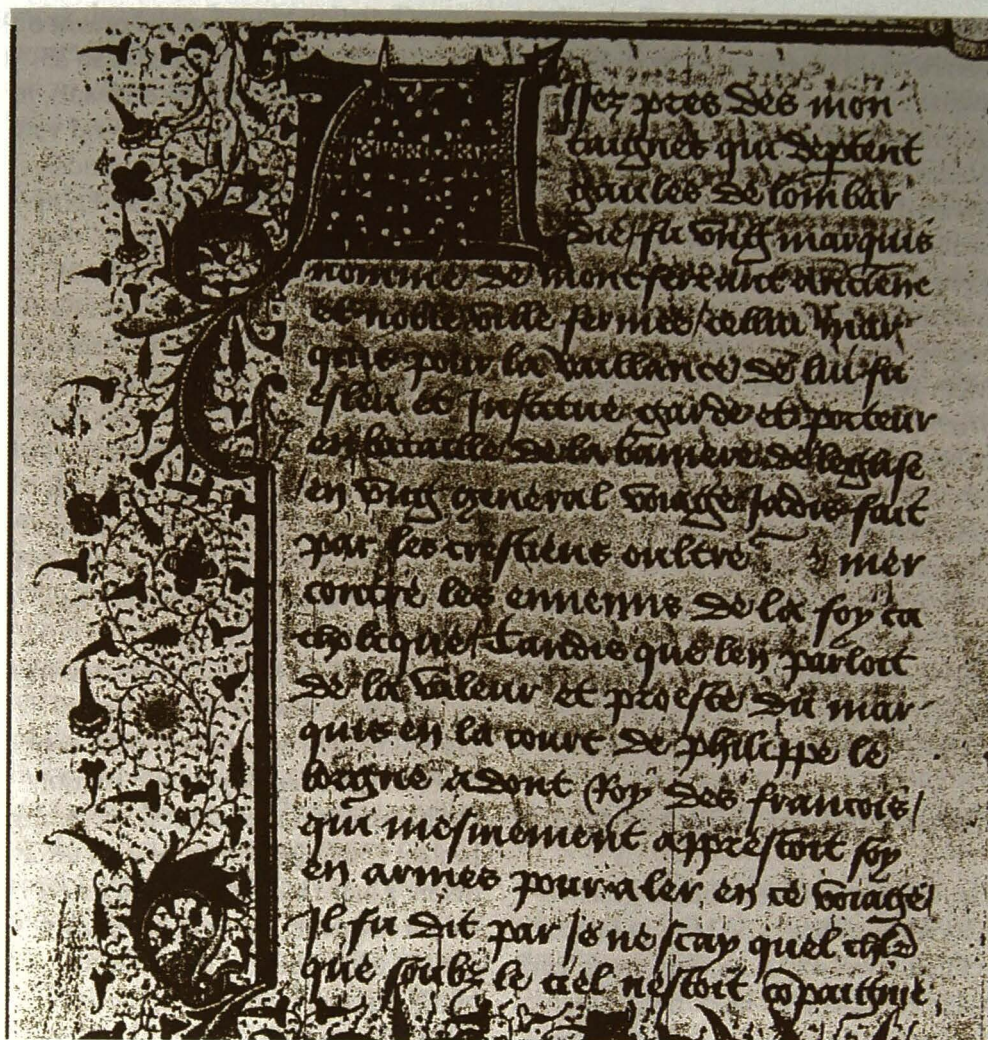 Assez pres des mon
taignes qui deptent
gaules de lombar
die / fu vng marquis
nomme de montferrant anciēne
et noble ville fermee / cellui mar
quis pour la vaillance de lui fu
esleu et Institue garde et porteur
en bataille de la baniere de leglise
en vng general voiage Jadis fait
par les crestiens oultre mer
contre les ennemis de la foy ca
tholicque / Tandis que len parloit
de la valeur et proesce du mar
quis en la court de philippe le
borgne adont Roy des francois /
qui mesmement apprestoit soy
en armes pour aler en ce voiage /
Il fu dit par Je ne scay quel chlr
que soubz le ciel nestoit cōpaignie